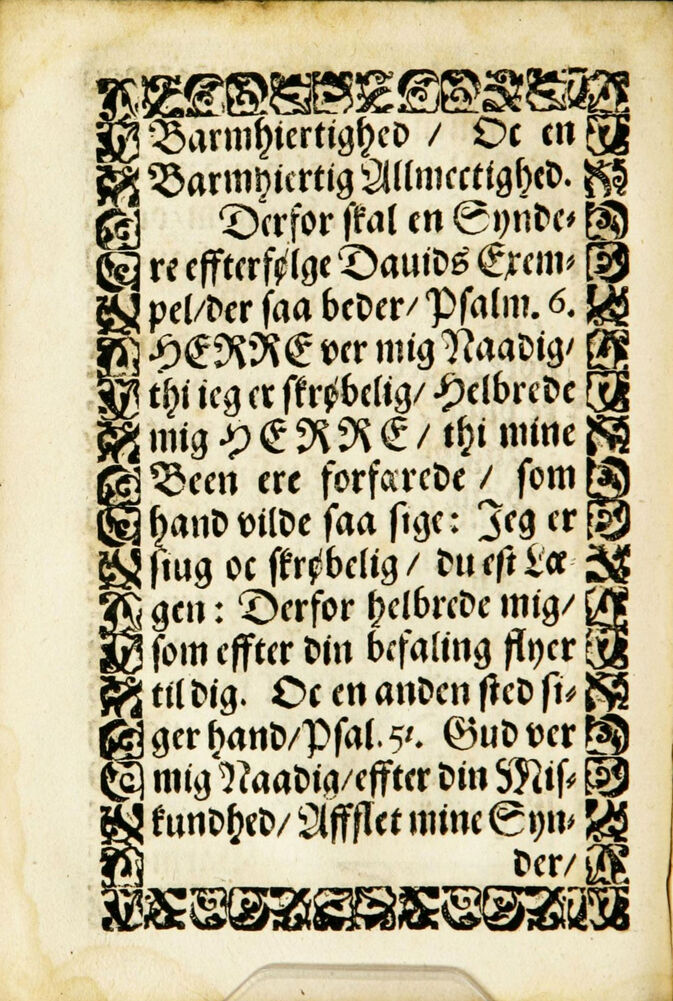 Barmhiertighed / Oc en
Barmhiertig Allmectighed.
Derfor skal en Synde-
re effterfølge Dauids Exem-
pel/der saa beder/ Psalm. 6.
HERRE ver mig Naadig/
thi ieg er skrøbelig/ Helbrede
mig HERRE/ thi mine
Been ere forfærede / som
hand vilde saa sige: Jeg er
siug oc skrøbelig / du est Læ-
gen: Derfor helbrede mig/
som effter din befaling flyer
til dig. Oc en anden sted si-
ger hand/Psal. 51. Gud ver
mig Naadig/effter din Mis-
kundhed/ Affslet mine Syn-
der/